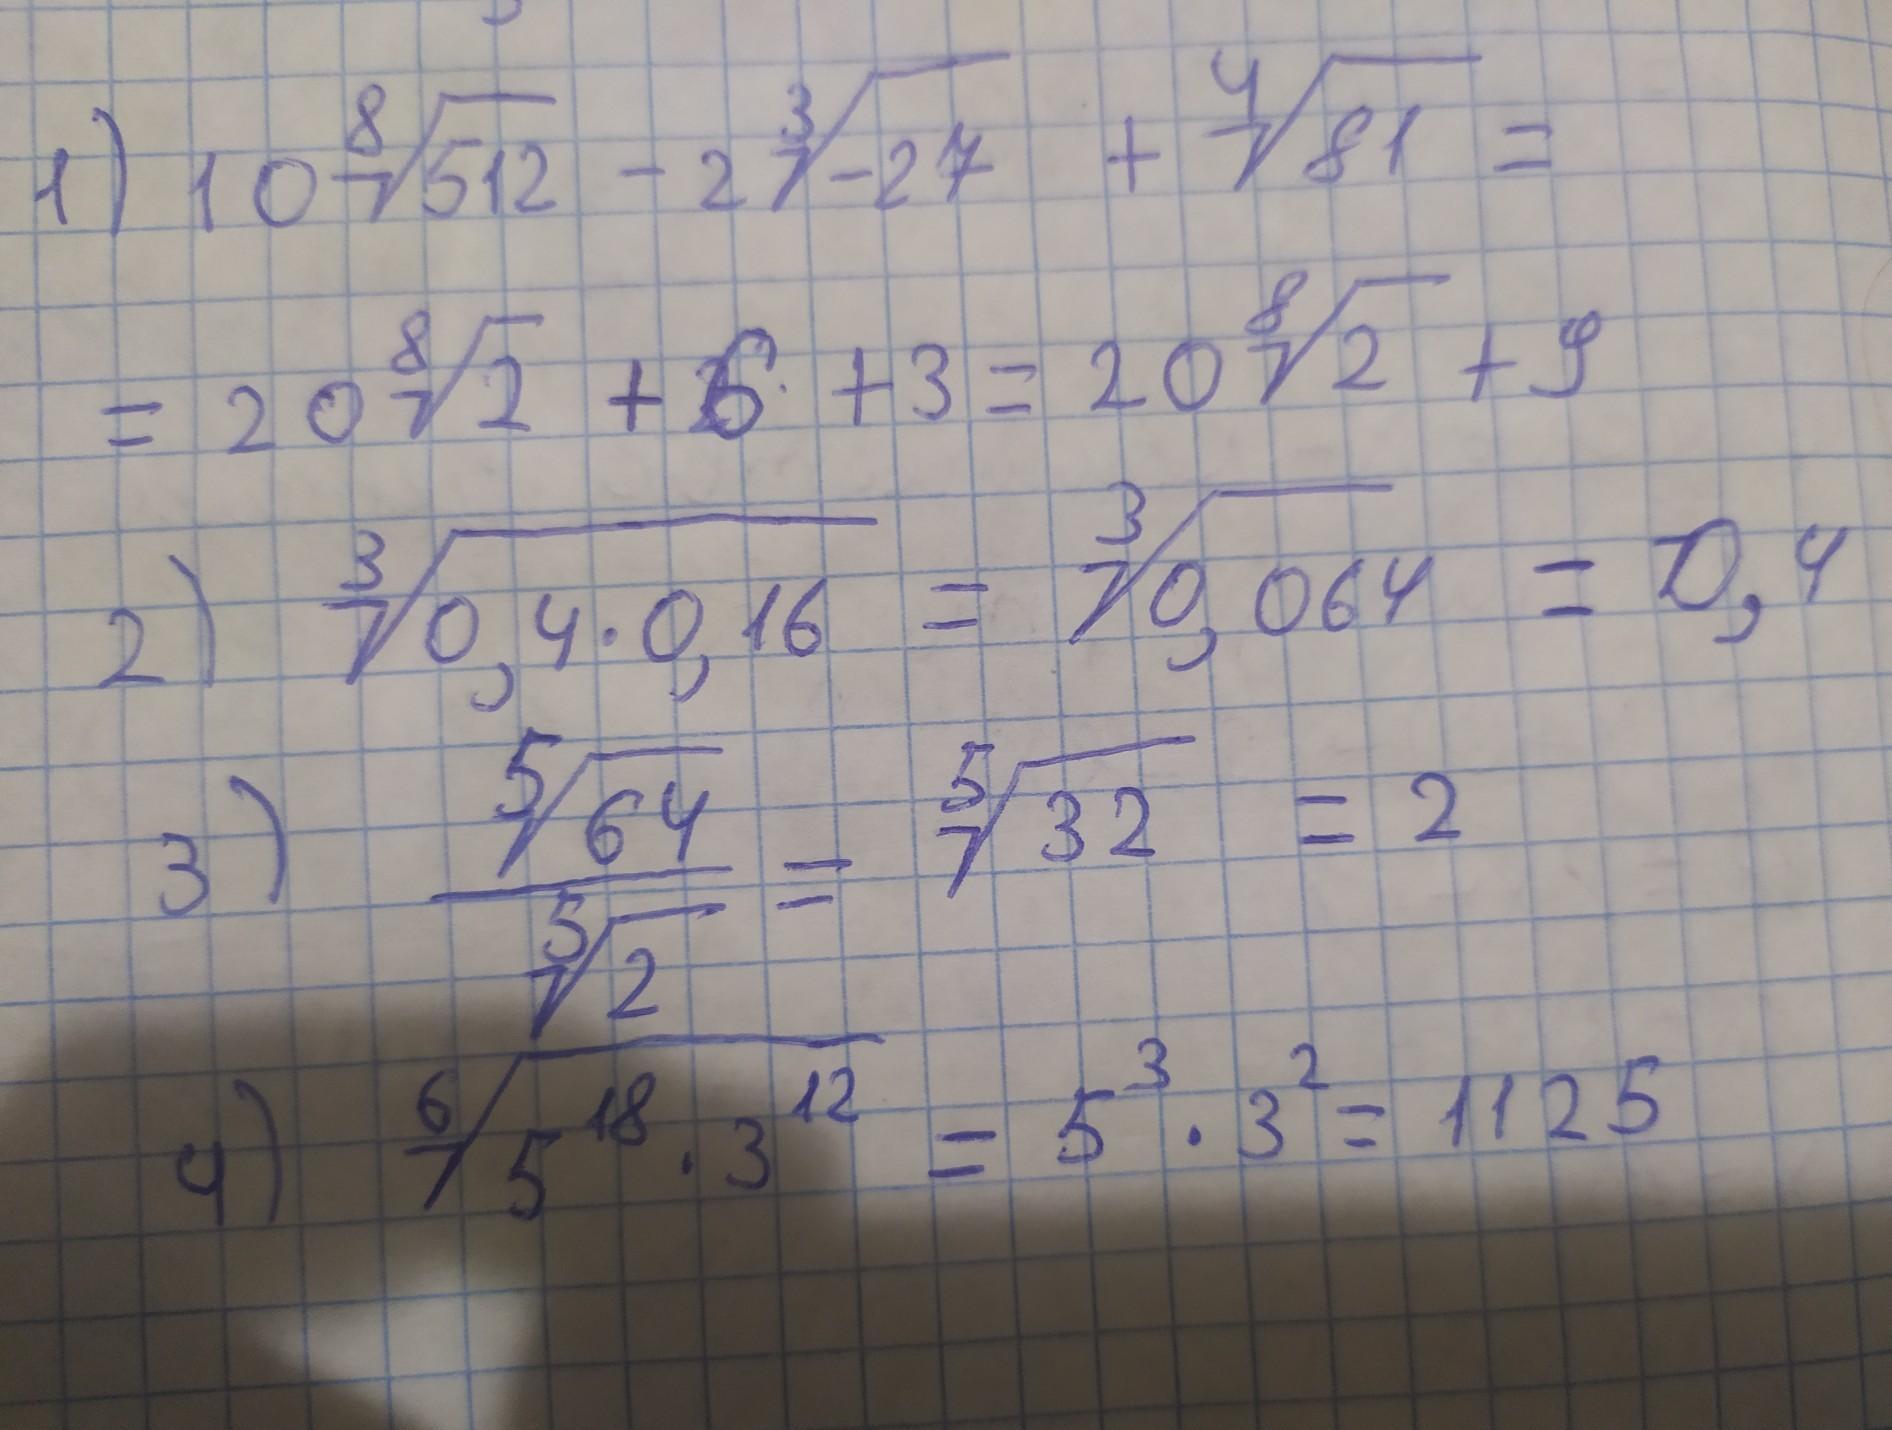 1) 10 ⁸√512 - 2 ³√-27 + ⁴√81 =
= 20 ⁸√2 + 6 + 3 = 20 ⁸√2 + 9
2) ³√0,4·0,16 = ³√0,064 = 0,4
3) ⁵√64 / ⁵√2 = ⁵√32 = 2
4) ⁶√5¹⁸·3¹² = 5³·3² = 1125